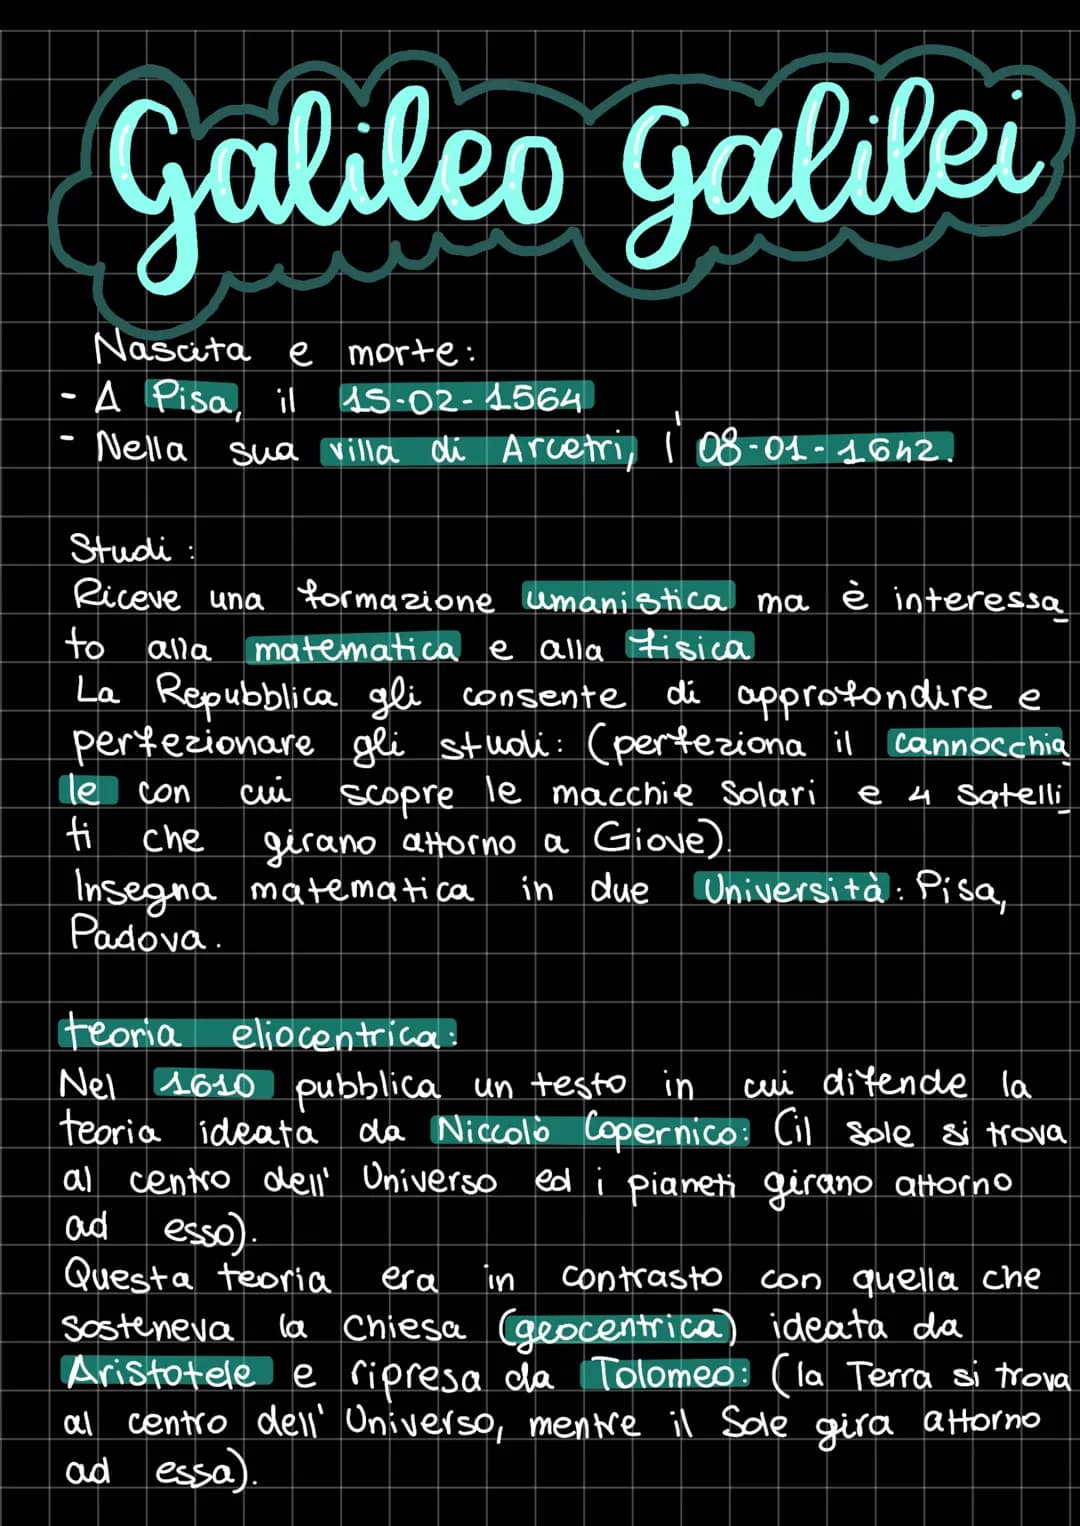 Galileo Galilei
Nascita e morte:
- A Pisa, il 15-02-1564
- Nella sua villa di Arcetri, l'08-01-1642.
Studi:
Riceve una formazione umanistica ma è interessa
to alla matematica e alla fisica
La Repubblica gli consente di approfondire e
perfezionare gli studi: (perfeziona il cannocchia
le con cui scopre le macchie Solari e 4 Satelli
ti che girano attorno a Giove).
Insegna matematica in due Università: Pisa,
Padova.
teoria eliocentrica:
Nel 1610 pubblica un testo in cui difende la
teoria ideata da Niccolò Copernico: (il Sole si trova
al centro dell'Universo ed i pianeti girano attorno
ad esso).
Questa teoria era in contrasto con quella che
sosteneva la Chiesa (geocentrica) ideata da
Aristotele e ripresa da Tolomeo: (la Terra si trova
al centro dell'Universo, mentre il Sole gira attorno
ad essa).